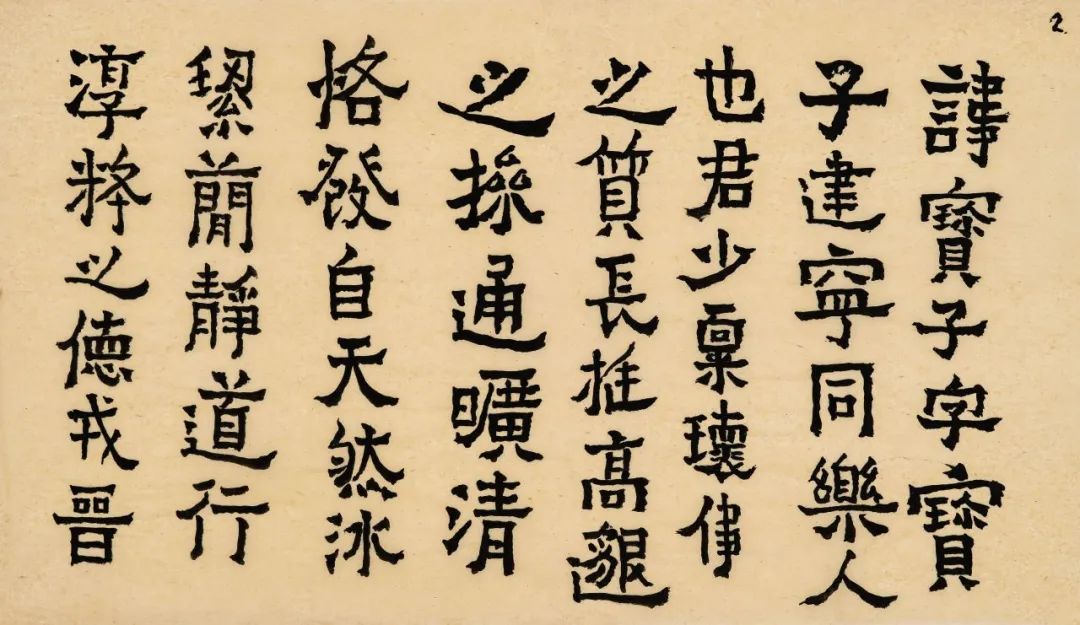 2
諱寳子字寳
子建寧同樂人
也君少稟瓌偉
之質長挺高邈
之操通曠清
恪發自天然冰
絜蕑靜道行
淳粹之德戎晉